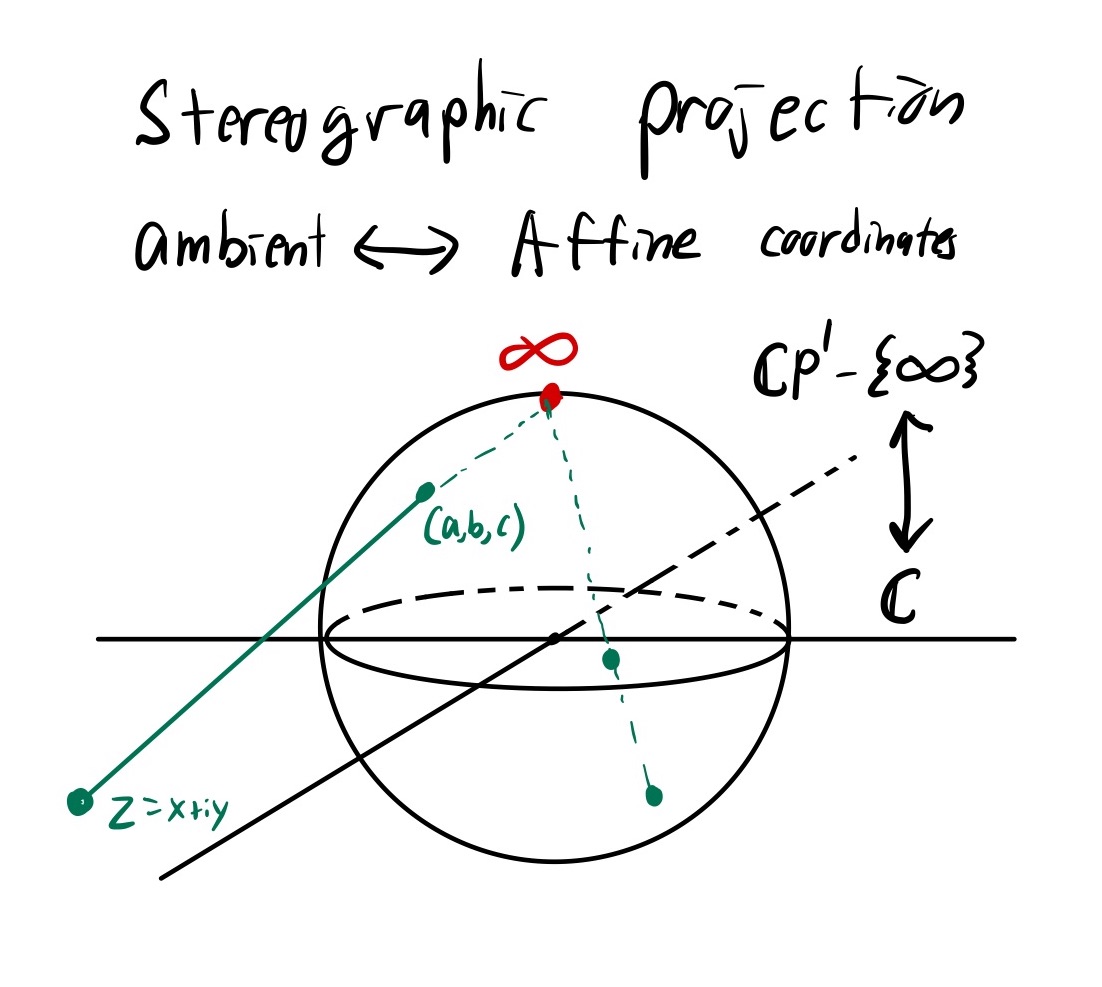 Stereographic projection
ambient ↔ Affine coordinates
∞
ℂP¹ - {∞}
↕
ℂ
(a,b,c)
z=x+iy